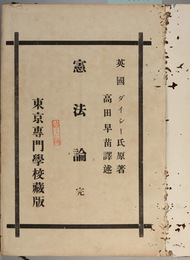 英國 ダイシー氏原著
高田早苗譯述
憲法論 完
東京專門學校藏版